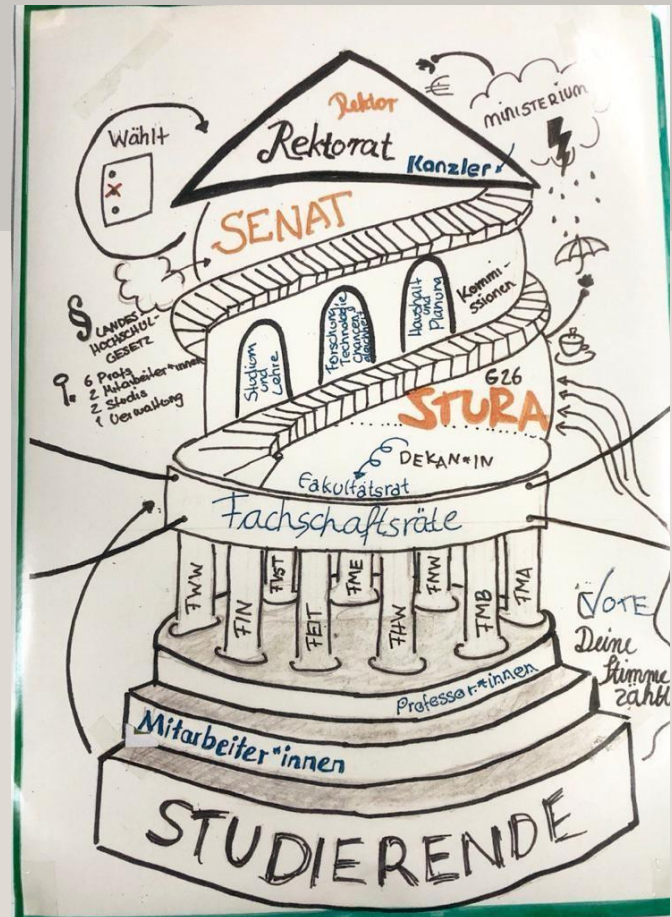 Rektor
Rektorat
Kanzler
€
MINISTERIUM
Wählt
X
SENAT
§ LANDES-
HOCHSCHUL-
GESETZ
6 Profs
2 Mitarbeiter*innen
2 Studis
1 Verwaltung
Studium
und
Lehre
Forschung
Technologie
Chancen
gleichheit
Haushalt
und
Planung
Kommi-
ssionen
G26
STURA
DEKAN*IN
Fakultätsrat
Fachschaftsräte
FWW
FIN
FVST
FEIT
FME
FHW
FNW
FMB
FMA
VOTE
Deine
Stimme
zählt
Professor*innen
Mitarbeiter*innen
STUDIERENDE